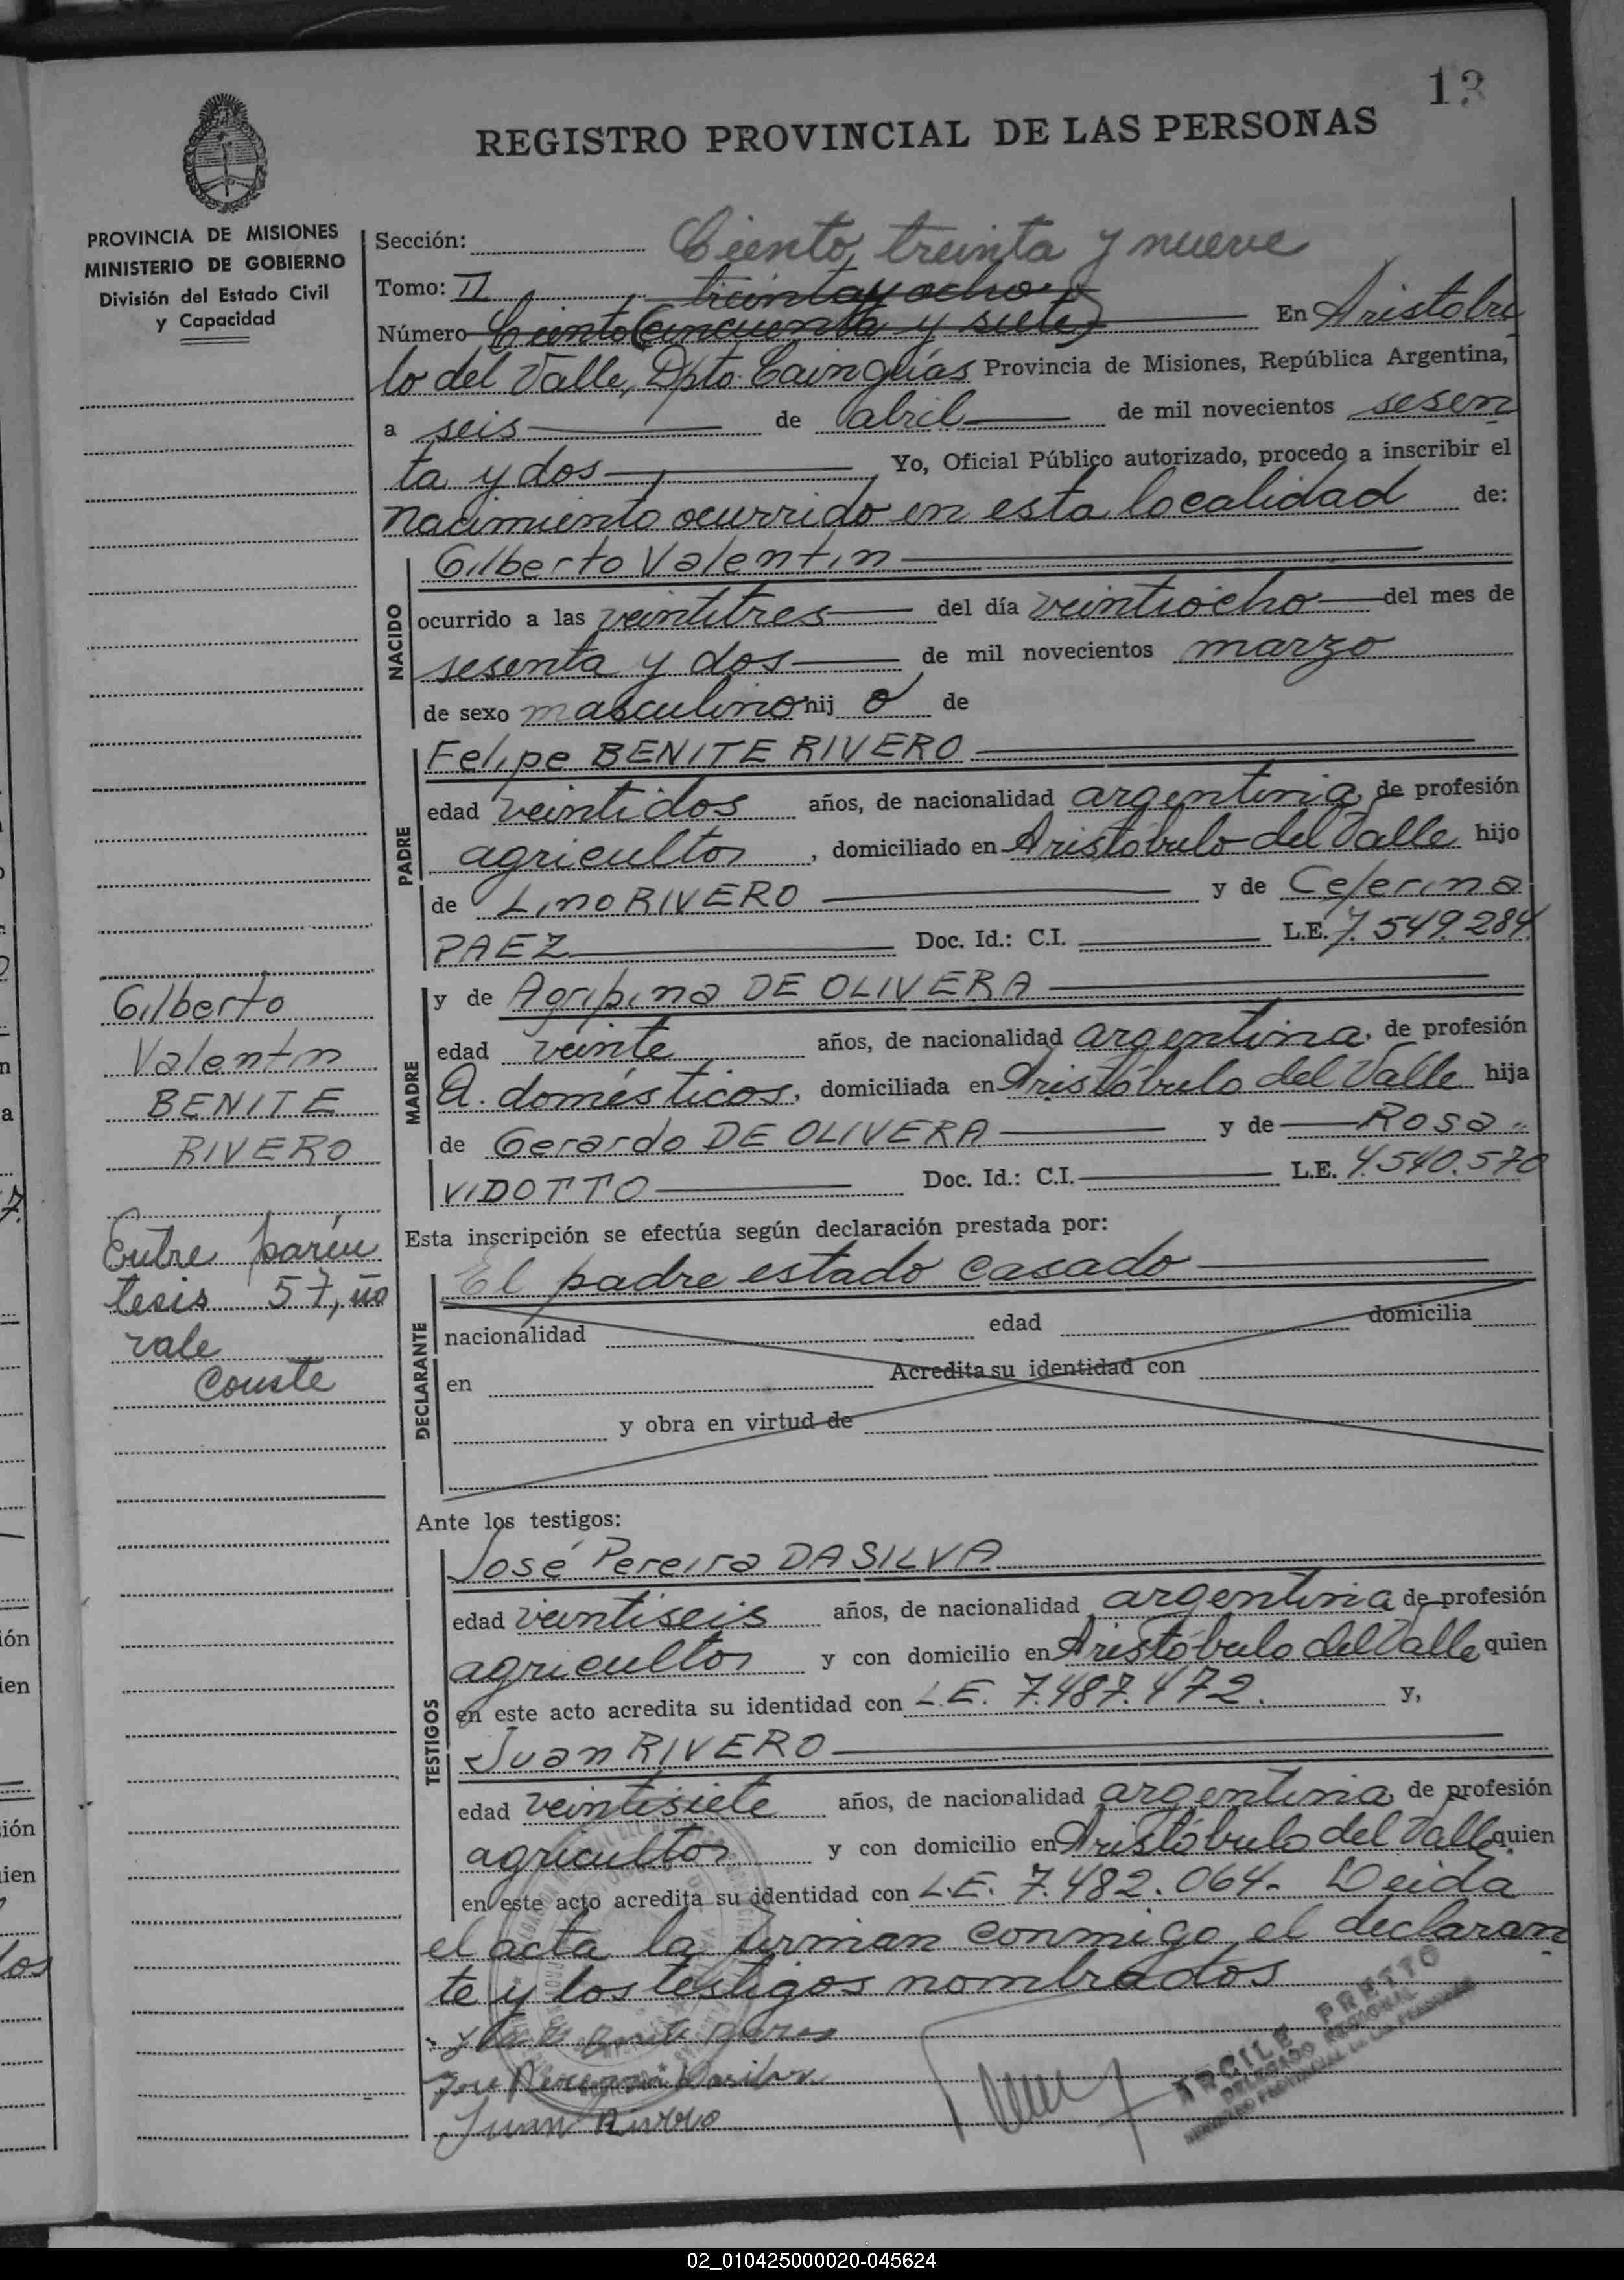 13
REGISTRO PROVINCIAL DE LAS PERSONAS
PROVINCIA DE MISIONES
MINISTERIO DE GOBIERNO
División del Estado Civil
y Capacidad
Sección: Ciento treinta y nueve
Tomo: II treinta y ocho
Número Ciento (cincuenta y siete) En Aristóbu
lo del Valle, Dpto. Cainguás Provincia de Misiones, República Argentina,
a seis de abril de mil novecientos sesen
ta y dos Yo, Oficial Público autorizado, procedo a inscribir el
nacimiento ocurrido en esta localidad de:
NACIDO
Gilberto Valentín
ocurrido a las veintitres del día veintiocho del mes de
sesenta y dos de mil novecientos marzo
de sexo masculino hij o de
PADRE
Felipe BENITE RIVERO
edad veintidos años, de nacionalidad argentina de profesión
agricultor, domiciliado en Aristóbulo del Valle hijo
de Lino RIVERO y de Ceferina
PAEZ Doc. Id.: C.I. L.E. 7.549.284
MADRE
y de Agripina DE OLIVERA
edad veinte años, de nacionalidad argentina, de profesión
Q. domésticos, domiciliada en Aristóbulo del Valle hija
de Gerardo DE OLIVERA y de Rosa
VIDOTTO Doc. Id.: C.I. L.E. 4.540.570
Gilberto
Valentin
BENITE
RIVERO
Entre parén
tesis 57, no
vale
Conste
Esta inscripción se efectúa según declaración prestada por:
DECLARANTE
El padre estado casado
nacionalidad edad domicilia
en Acredita su identidad con
y obra en virtud de
Ante los testigos:
TESTIGOS
José Pereira DASILVA
edad veintiseis años, de nacionalidad argentina de profesión
agricultor y con domicilio en Aristóbulo del Valle quien
en este acto acredita su identidad con L.E. 7.487.472. y,
Juan RIVERO
edad veintisiete años, de nacionalidad argentina, de profesión
agricultor y con domicilio en Aristóbulo del Valle quien
en este acto acredita su identidad con L.E. 7.482.064. Leida
el acta la firman conmigo el declaran
te y los testigos nombrados
Juan Rivero
ARCILE PRETTO
DELEGADO REGIONAL
REGISTRO PROVINCIAL DE LAS PERSONAS
02_010425000020-045624